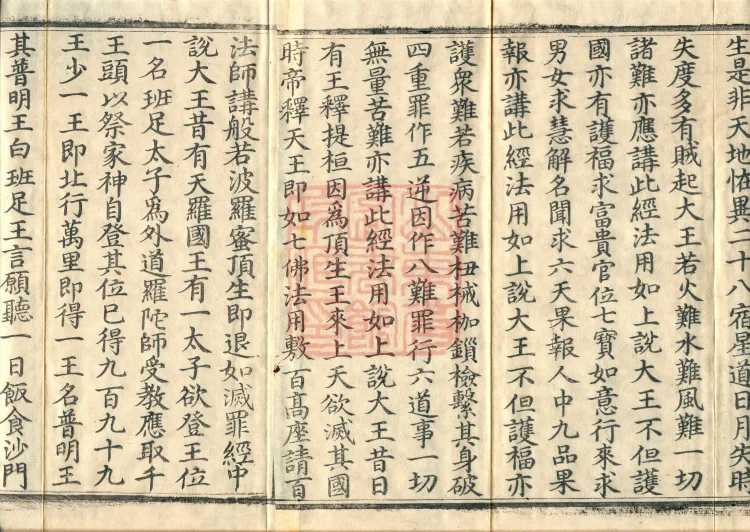 生是非天地怪異二十八宿星道日月失時
失度多有賊起大王若火難水難風難一切
諸難亦應講此經法用如上說大王不但護
國亦有護福求富貴官位七寶如意行來求
男女求慧解名聞求六天果報人中九品果
報亦講此經法用如上說大王不但護福亦
護衆難若疾病苦難杻械枷鎖檢繫其身破
四重罪作五逆因作八難罪行六道事一切
無量苦難亦講此經法用如上說大王昔日
有王釋提桓因爲頂生王來上天欲滅其國
時帝釋天王即如七佛法用敷百高座請百
法師講般若波羅蜜頂生即退如滅罪經中
說大王昔有天羅國王有一太子欲登王位
一名班足太子爲外道羅陀師受教應取千
王頭以祭家神自登其位已得九百九十九
王少一王即北行萬里即得一王名普明王
其普明王白班足王言願聽一日飯食沙門